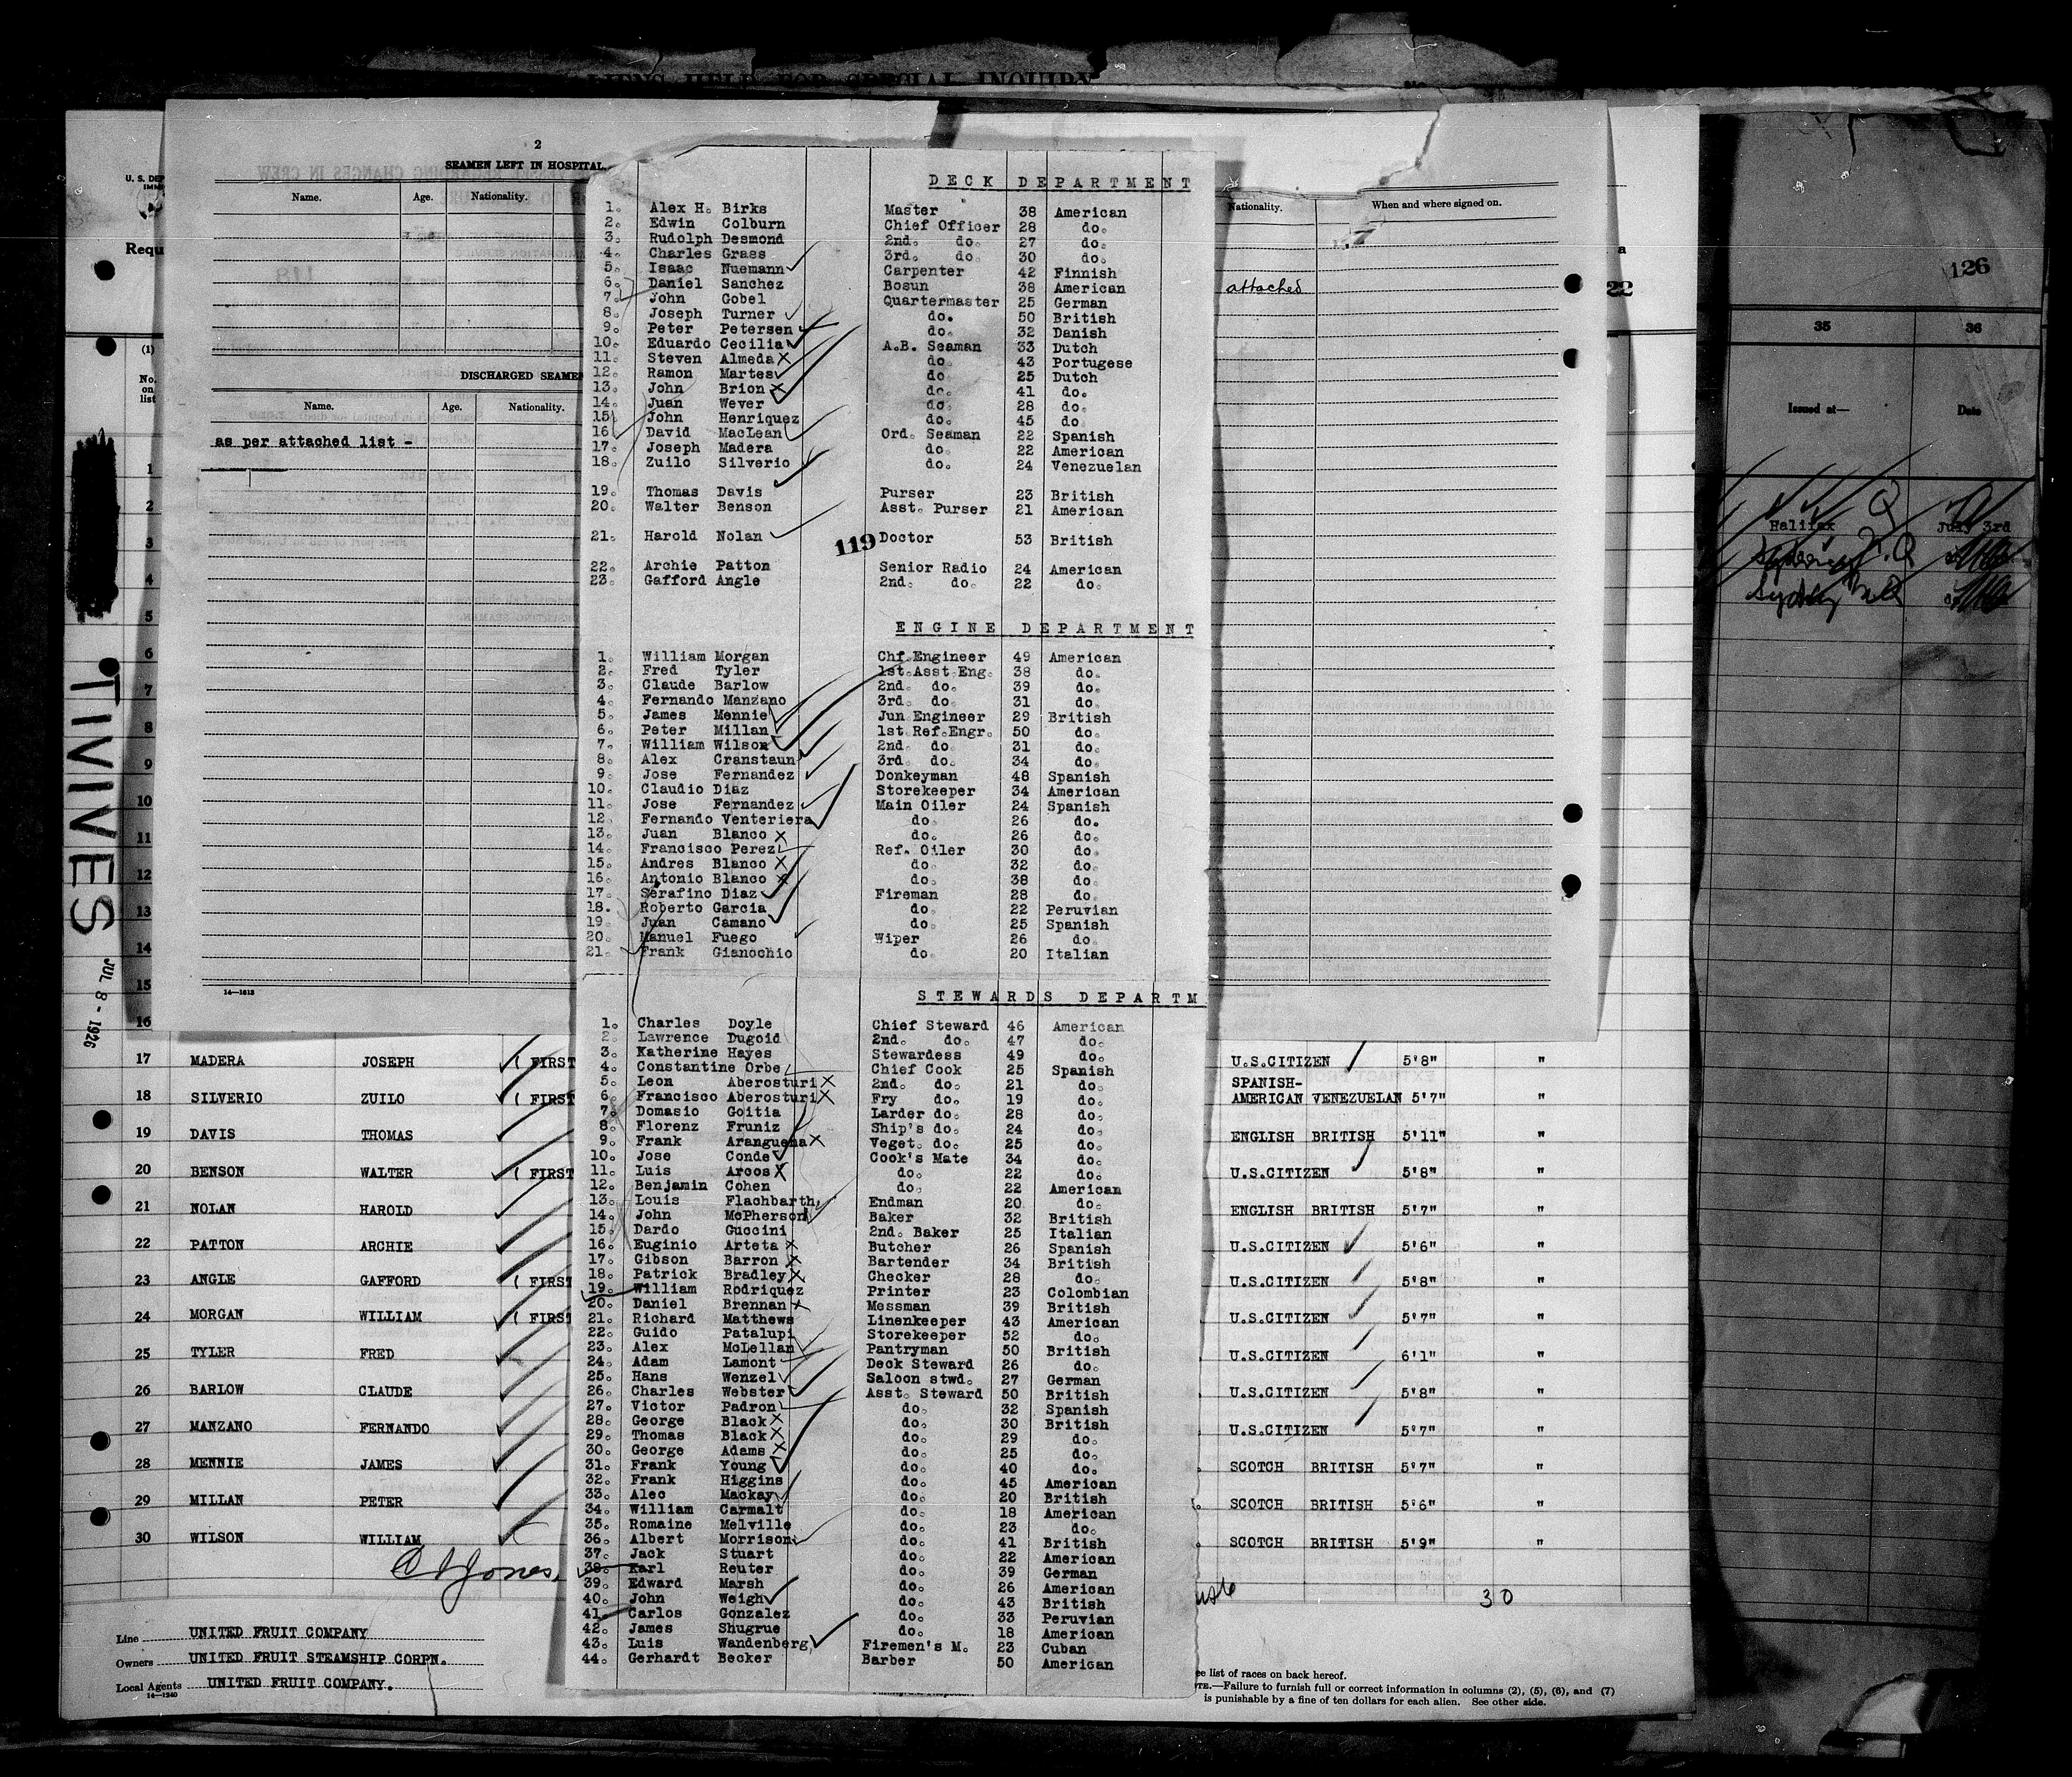 ALIENS HELD FOR SPECIAL INQUIRY
2
SEAMEN LEFT IN HOSPITAL
Name. Age. Nationality.
DISCHARGED SEAMEN
Name. Age. Nationality.
as per attached list -
14—1613
U. S. DEP
IMMI
Requ
(1)
No. on list
1
2
3
4
5
6
7
8
9
10
11
12
13
14
15
16
TIVIVES
JUL 8 - 1926
DECK DEPARTMENT
1. Alex H. Birks Master 38 American
2. Edwin Colburn Chief Officer 28 do.
3. Rudolph Desmond 2nd. do. 27 do.
4. Charles Grass 3rd. do. 30 do.
5. Isaac Nuemann Carpenter 42 Finnish
6. Daniel Sanchez Bosun 38 American
7. John Gobel Quartermaster 25 German
8. Joseph Turner do. 50 British
9. Peter Petersen do. 32 Danish
10. Eduardo Cecilia A.B. Seaman 33 Dutch
11. Steven Almeda do. 43 Portugese
12. Ramon Martes do. 25 Dutch
13. John Brion do. 41 do.
14. Juan Wever do. 28 do.
15. John Henriquez do. 45 do
16. David MacLean Ord. Seaman 22 Spanish
17. Joseph Madera do. 22 American
18. Zuilo Silverio do. 24 Venezuelan
19. Thomas Davis Purser 23 British
20. Walter Benson Asst. Purser 21 American
21. Harold Nolan Doctor 53 British
119
22. Archie Patton Senior Radio 24 American
23. Gafford Angle 2nd. do. 22 do.
ENGINE DEPARTMENT
1. William Morgan Chf.Engineer 49 American
2. Fred Tyler 1st.Asst.Eng. 38 do.
3. Claude Barlow 2nd. do. 39 do.
4. Fernando Manzano 3rd. do. 31 do.
5. James Mennie Jun.Engineer 29 British
6. Peter Millan 1st.Ref.Engr. 50 do.
7. William Wilson 2nd. do. 31 do.
8. Alex Cranstaun 3rd. do. 34 do.
9. Jose Fernandez Donkeyman 48 Spanish
10. Claudio Diaz Storekeeper 34 American
11. Jose Fernandez Main Oiler 24 Spanish
12. Fernando Venteriera do. 26 do.
13. Juan Blanco do. 26 do.
14. Francisco Perez Ref. Oiler 30 do.
15. Andres Blanco do. 32 do.
16. Antonio Blanco do. 38 do.
17. Serafino Diaz Fireman 28 do.
18. Roberto Garcia do. 22 Peruvian
19. Juan Camano do. 25 Spanish
20. Manuel Fuego Wiper 26 do.
21. Frank Gianochio do. 20 Italian
STEWARDS DEPARTM
1. Charles Doyle Chief Steward 46 American
2. Lawrence Dugoid 2nd. do. 47 do.
3. Katherine Hayes Stewardess 49 do.
4. Constantine Orbe Chief Cook 25 Spanish
5. Leon Aberosturi 2nd. do. 21 do.
6. Francisco Aberosturi Fry do. 19 do.
7. Domasio Goitia Larder do. 28 do.
8. Florenz Fruniz Ship's do. 24 do.
9. Frank Aranguena Veget. do. 25 do.
10. Jose Conde Cook's Mate 34 do.
11. Luis Arcos do. 22 do.
12. Benjamin Cohen do. 22 American
13. Louis Flachbarth Endman 20 do.
14. John McPherson Baker 32 British
15. Dardo Guccini 2nd. Baker 25 Italian
16. Euginio Arteta Butcher 26 Spanish
17. Gibson Barron Bartender 34 British
18. Patrick Bradley Checker 28 do.
19. William Rodriquez Printer 23 Colombian
20. Daniel Brennan Messman 39 British
21. Richard Matthews Linenkeeper 43 American
22. Guido Patalupi Storekeeper 52 do.
23. Alex McLellan Pantryman 50 British
24. Adam Lamont Deck Steward 26 do.
25. Hans Wenzel Saloon stwd. 27 German
26. Charles Webster Asst. Steward 50 British
27. Victor Padron do. 32 Spanish
28. George Black do. 30 British
29. Thomas Black do. 29 do.
30. George Adams do. 25 do.
31. Frank Young do. 40 do.
32. Frank Higgins do. 45 American
33. Alec Mackay do. 20 British
34. William Carmalt do. 18 American
35. Romaine Melville do. 23 do.
36. Albert Morrison do. 41 British
37. Jack Stuart do. 22 American
38. Karl Reuter do. 39 German
39. Edward Marsh do. 26 American
40. John Weigh do. 43 British
41. Carlos Gonzalez do. 33 Peruvian
42. James Shugrue do. 18 American
43. Luis Wandenberg Firemen's M. 23 Cuban
44. Gerhardt Becker Barber 50 American
Nationality. When and where signed on.
attached
22
126
35 36
Issued at— Date
Halifax July 3rd
Sydney
17 MADERA JOSEPH ( FIRST U.S.CITIZEN 5'8" "
18 SILVERIO ZUILO ( FIRST SPANISH-AMERICAN VENEZUELAN 5'7" "
19 DAVIS THOMAS ENGLISH BRITISH 5'11" "
20 BENSON WALTER ( FIRST U.S.CITIZEN 5'8" "
21 NOLAN HAROLD ENGLISH BRITISH 5'7" "
22 PATTON ARCHIE U.S.CITIZEN 5'6" "
23 ANGLE GAFFORD ( FIRST U.S.CITIZEN 5'8" "
24 MORGAN WILLIAM ( FIRST U.S.CITIZEN 5'7" "
25 TYLER FRED U.S.CITIZEN 6'1" "
26 BARLOW CLAUDE U.S.CITIZEN 5'8" "
27 MANZANO FERNANDO U.S.CITIZEN 5'7" "
28 MENNIE JAMES SCOTCH BRITISH 5'7" "
29 MILLAN PETER SCOTCH BRITISH 5'6" "
30 WILSON WILLIAM SCOTCH BRITISH 5'9" "
Jones
30
Line UNITED FRUIT COMPANY
Owners UNITED FRUIT STEAMSHIP CORPN.
Local Agents UNITED FRUIT COMPANY.
14—1240
ee list of races on back hereof.
TE.—Failure to furnish full or correct information in columns (2), (5), (6), and (7)
is punishable by a fine of ten dollars for each alien. See other side.